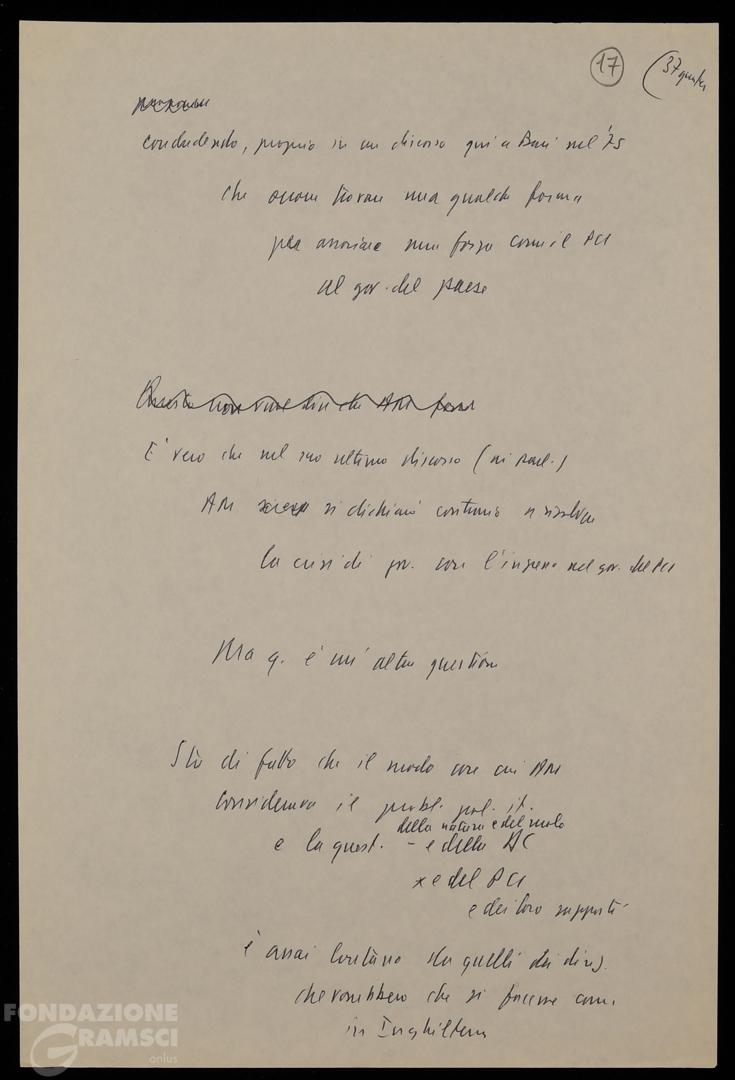 17 (37 quater
concludendo, proprio in un discorso qui a Bari nel '75
che occorre trovare una qualche forma
per associare una forza come il PCI
al gov. del paese
Questo non vuol dire che AM
E' vero che nel suo ultimo discorso (ai parl.)
AM si dichiarò contrario a risolvere
la crisi di gov. con l'ingresso nel gov. del PCI
Ma q. è un' altra questione
Stà di fatto che il modo con cui AM
considerava il probl. pol. it.
della natura e del ruolo
e la quest. - e della DC
x e del PCI
e dei loro rapporti
è assai lontano da quelli dei dirig.
che vorrebbero che si facesse come
in Inghilterra
FONDAZIONE
GRAMSCI
onlus